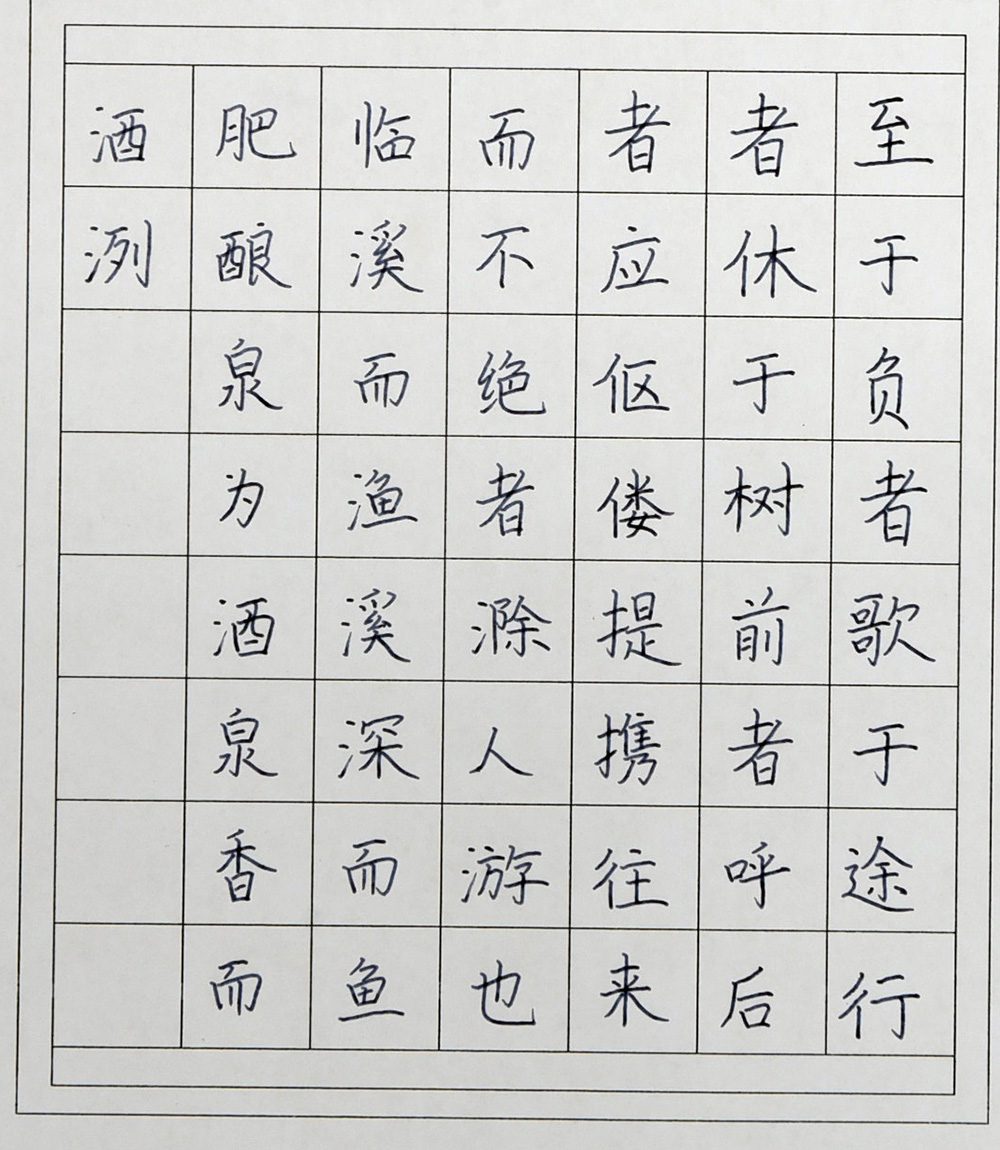 至于负者歌于途行
者休于树前者呼后
者应伛偻提携往来
而不绝者滁人游也
临溪而渔溪深而鱼
肥酿泉为酒泉香而
酒洌